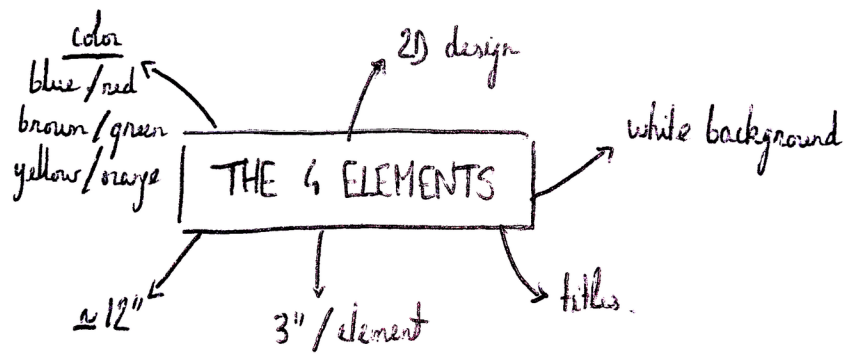 color
blue/red
brown/green
yellow/orange
2D design
white background
THE 4 ELEMENTS
≈12"
3"/element
titles.